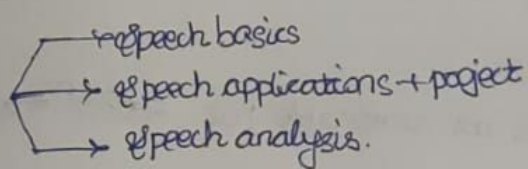 speech basics
speech applications + poject
speech analysis.